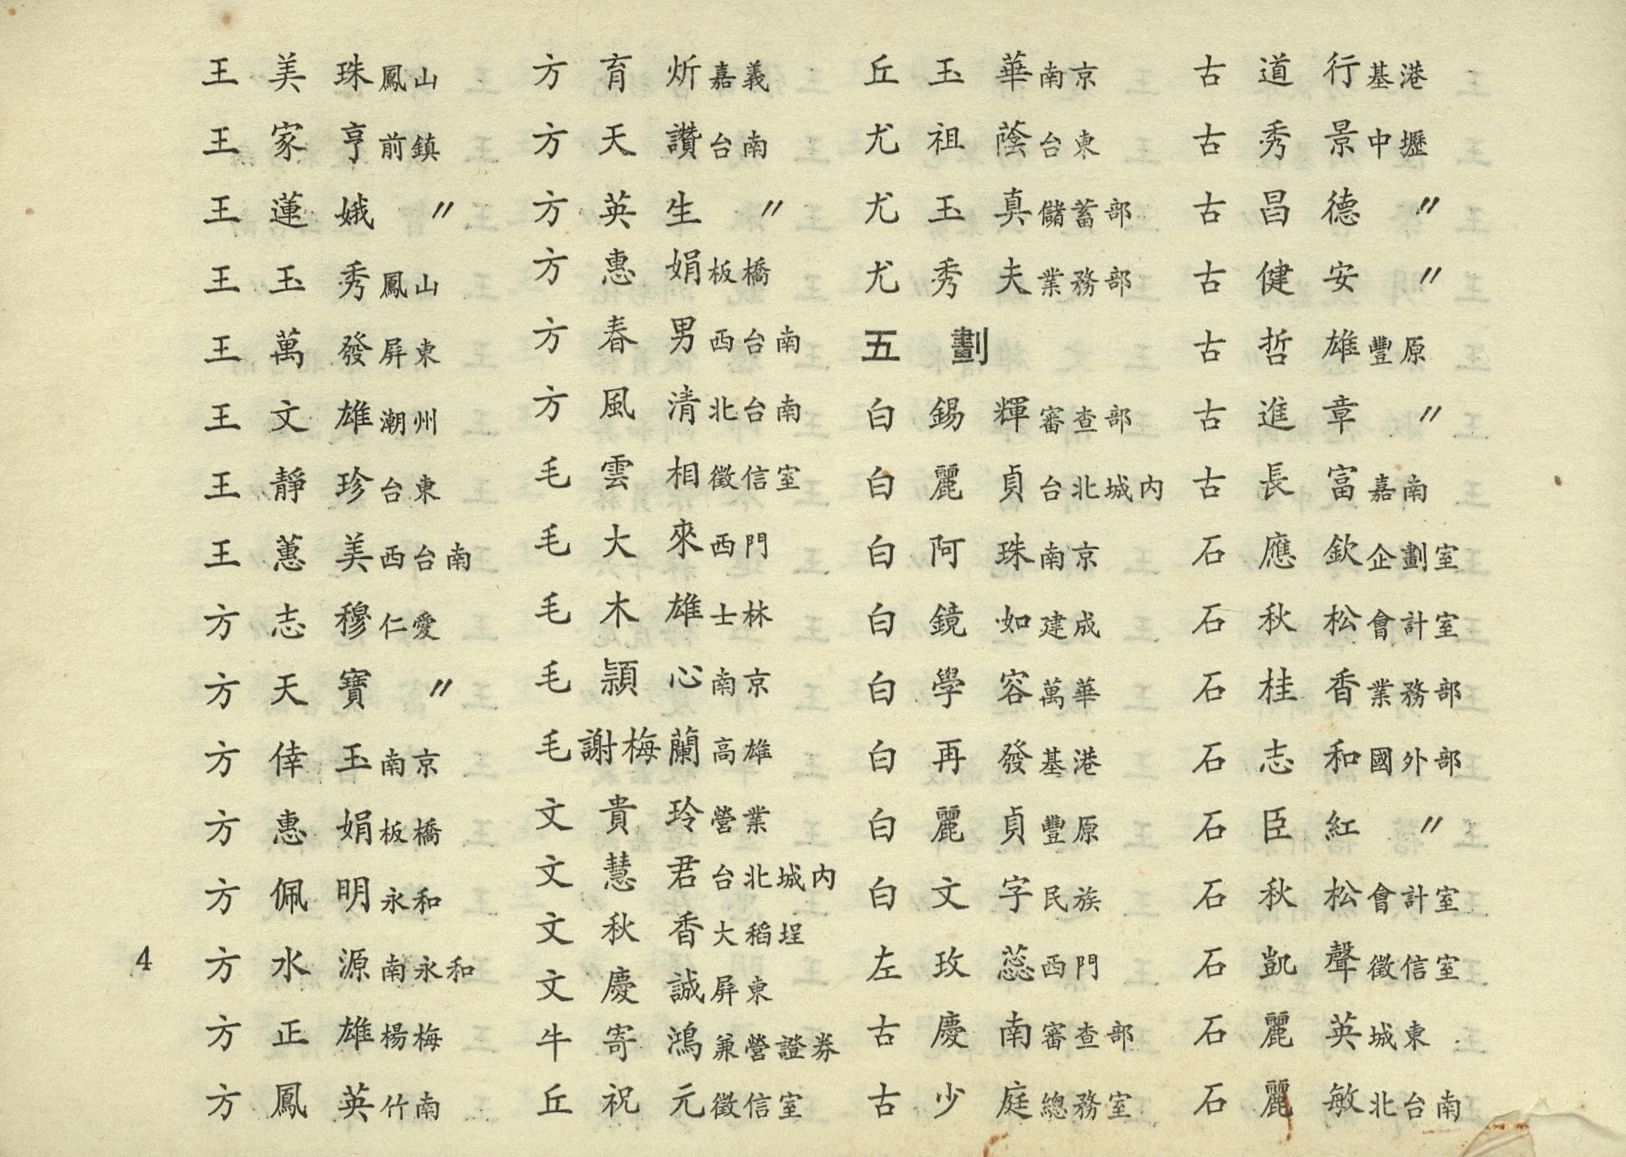 王美珠鳳山
王家亨前鎮
王蓮娥〃
王玉秀鳳山
王萬發屏東
王文雄潮州
王靜珍台東
王蕙美西台南
方志穆仁愛
方天寶〃
方倖玉南京
方惠娟板橋
方佩明永和
方水源南永和
方正雄楊梅
方鳳英竹南
方育炘嘉義
方天讚台南
方英生〃
方惠娟板橋
方春男西台南
方風清北台南
毛雲相徵信室
毛大來西門
毛木雄士林
毛頴心南京
毛謝梅蘭高雄
文貴玲營業
文慧君台北城内
文秋香大稻埕
文慶誠屏東
牛寄鴻兼營證券
丘祝元徵信室
丘玉華南京
尤祖蔭台東
尤玉真儲蓄部
尤秀夫業務部
五劃
白錫輝審查部
白麗貞台北城内
白阿珠南京
白鏡如建成
白學容萬華
白再發基港
白麗貞豐原
白文字民族
左玫蕊西門
古慶南審查部
古少庭總務室
古道行基港
古秀景中壢
古昌德〃
古健安〃
古哲雄豐原
古進章〃
古長富嘉南
石應欽企劃室
石秋松會計室
石桂香業務部
石志和國外部
石臣紅〃
石秋松會計室
石凱聲徵信室
石麗英城東
石麗敏北台南
4